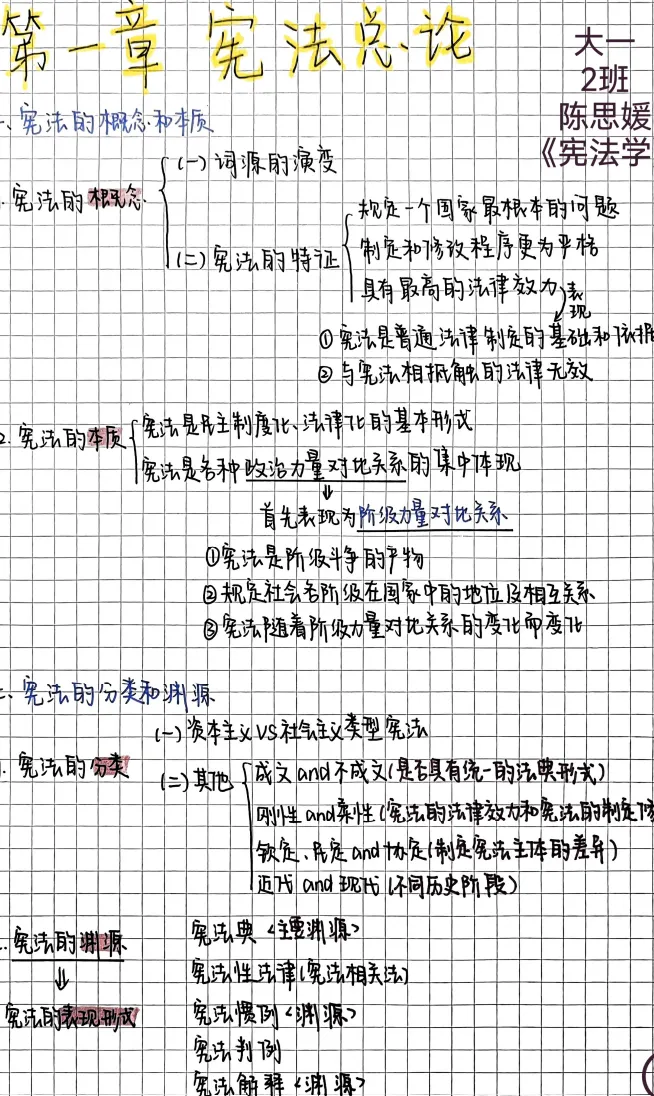 第一章 宪法总论
大一
2班
陈思媛
《宪法学
一、宪法的概念和本质
1. 宪法的概念
(一) 词源的演变
(二) 宪法的特征
规定一个国家最根本的问题
制定和修改程序更为严格
具有最高的法律效力
表现
① 宪法是普通法律制定的基础和依据
② 与宪法相抵触的法律无效
2. 宪法的本质
宪法是民主制度化、法律化的基本形式
宪法是各种政治力量对比关系的集中体现
⇓
首先表现为阶级力量对比关系
①宪法是阶级斗争的产物
②规定社会各阶级在国家中的地位及相互关系
③宪法随着阶级力量对比关系的变化而变化
二、宪法的分类和渊源
1. 宪法的分类
(一) 资本主义VS社会主义类型宪法
(二) 其他
成文and不成文(是否具有统一的法典形式)
刚性and柔性(宪法的法律效力和宪法的制定修
钦定、民定and协定(制定宪法主体的差异)
近代 and 现代 (不同历史阶段)
宪法的渊源
⇓
宪法的表现形式
宪法典 <主要渊源>
宪法性法律(宪法相关法)
宪法惯例<渊源>
宪法判例
宪法解释<渊源>